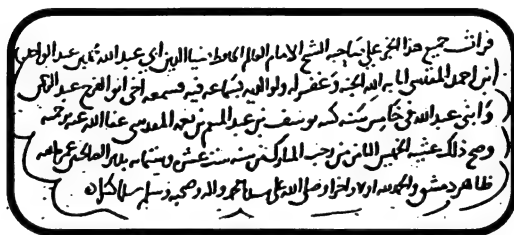 قرأت جميع هذا الجزء على صاحبه الشيخ الامام العالم الحافظ ضيا الدين ابي عبد الله محمد بن عبد الواحد
ابن احمد المقدسي اثابه الله الجنه وغفر له ولوالديه بسماعه فيه فسمعه اخي ابو الفرج عبد الرحمن
وابني عبد الله في خامس سنه كتبه يوسف بن عبد المنعم بن نعمه المقدسي عفا الله عنه برحمته
وصح ذلك عشيه الخميس الثامن من رجب المبارك من سنه ست عشر وستمايه بدير الصالحين
ظاهر دمشق والحمد لله اولا واخرا وصلى الله على سيدنا محمد واله وصحبه وسلم